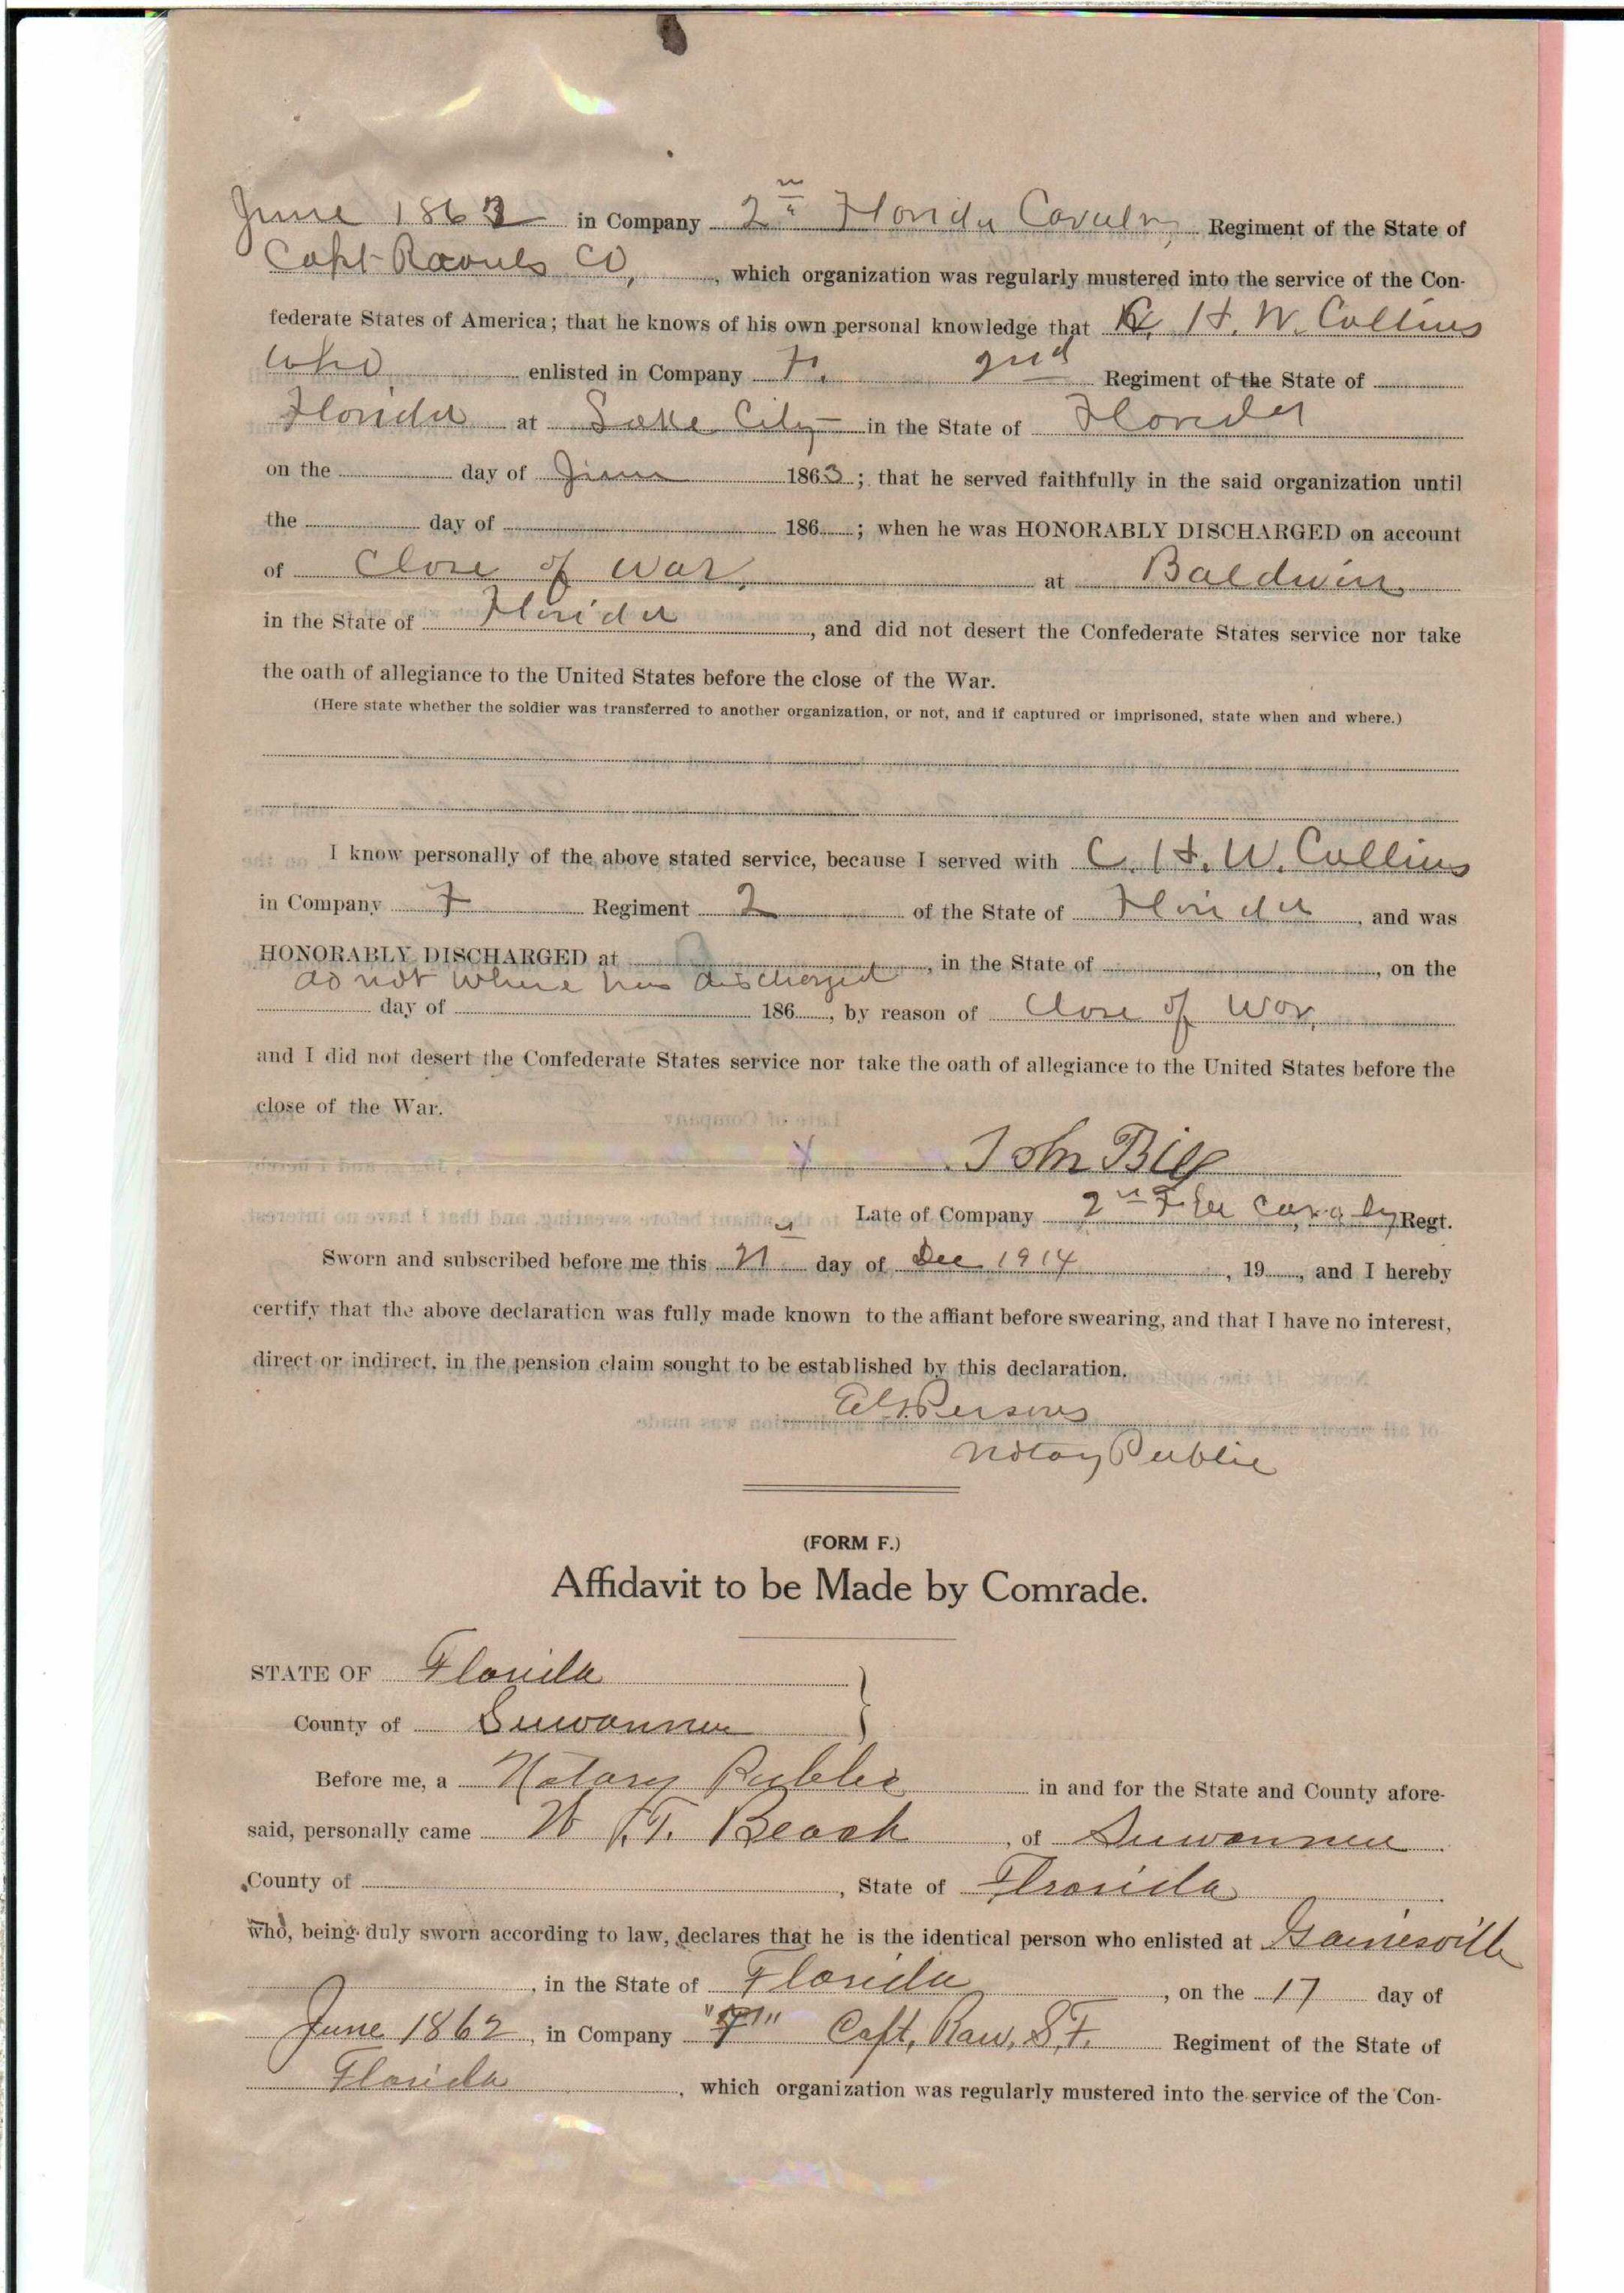 June 1863 in Company 2nd Florida Cavalry Regiment of the State of
Capt Ravuls Co, , which organization was regularly mustered into the service of the Con-
federate States of America; that he knows of his own personal knowledge that C. H. W. Collins
who enlisted in Company F. 2nd Regiment of the State of
Florida at Lake City in the State of Florida
on the day of June 1863; that he served faithfully in the said organization until
the day of 186 ; when he was HONORABLY DISCHARGED on account
of Close of War, at Baldwin,
in the State of Florida , and did not desert the Confederate States service nor take
the oath of allegiance to the United States before the close of the War.
(Here state whether the soldier was transferred to another organization, or not, and if captured or imprisoned, state when and where.)
I know personally of the above stated service, because I served with C. H. W. Collins
in Company F Regiment 2 of the State of Florida , and was
HONORABLY DISCHARGED at , in the State of , on the
do not where his discharged
day of 186 , by reason of Close of War,
and I did not desert the Confederate States service nor take the oath of allegiance to the United States before the
close of the War.
x John Bill
Late of Company 2nd Fla Cavalry Regt.
Sworn and subscribed before me this 21 day of Dec 1914 , 19 , and I hereby
certify that the above declaration was fully made known to the affiant before swearing, and that I have no interest,
direct or indirect, in the pension claim sought to be established by this declaration.
Persons
Notary Public
(FORM F.)
Affidavit to be Made by Comrade.
STATE OF Florida
County of Suwannee
Before me, a Notary Public in and for the State and County afore-
said, personally came W. T. Beach , of Suwannee
County of , State of Florida
who, being duly sworn according to law, declares that he is the identical person who enlisted at Gainesville
, in the State of Florida , on the 17 day of
June 1862 , in Company "F" Capt, Raw, S.F. Regiment of the State of
Florida , which organization was regularly mustered into the service of the Con-